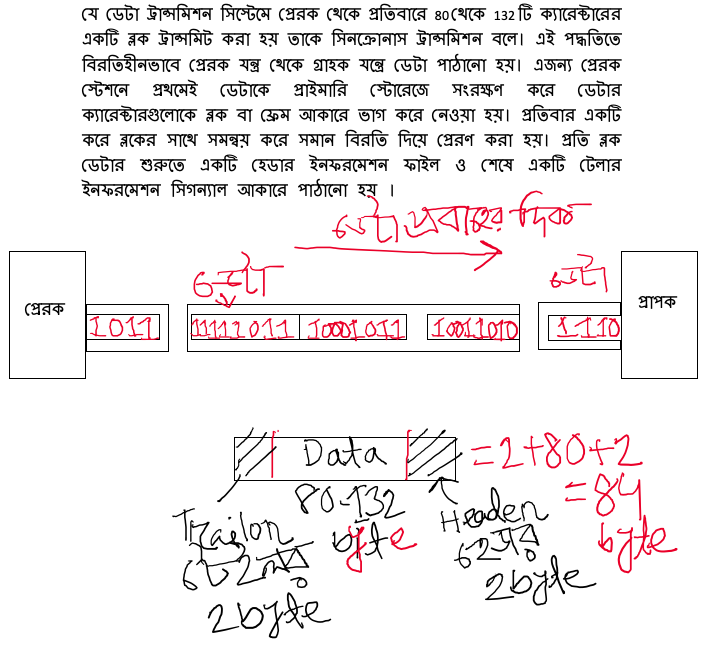 যে ডেটা ট্রান্সমিশন সিস্টেমে প্রেরক থেকে প্রতিবারে 80থেকে 132টি ক্যারেক্টারের
একটি ব্লক ট্রান্সমিট করা হয় তাকে সিনক্রোনাস ট্রান্সমিশন বলে। এই পদ্ধতিতে
বিরতিহীনভাবে প্রেরক যন্ত্র থেকে গ্রাহক যন্ত্রে ডেটা পাঠানো হয়। এজন্য প্রেরক
স্টেশনে প্রথমেই ডেটাকে প্রাইমারি স্টোরেজে সংরক্ষণ করে ডেটার
ক্যারেক্টারগুলোকে ব্লক বা ফ্রেম আকারে ভাগ করে নেওয়া হয়। প্রতিবার একটি
করে ব্লকের সাথে সমন্বয় করে সমান বিরতি দিয়ে প্রেরণ করা হয়। প্রতি ব্লক
ডেটার শুরুতে একটি হেডার ইনফরমেশন ফাইল ও শেষে একটি টেলার
ইনফরমেশন সিগন্যাল আকারে পাঠানো হয় ।
ডেটা প্রবাহের দিক
ডেটা ডেটা
প্রেরক প্রাপক
1011 11111011 10001011 10011010 1110
Data =2+80+2
80-132 =84
byte byte
Trailon Headen
টেইলর হেডার
2byte 2byte